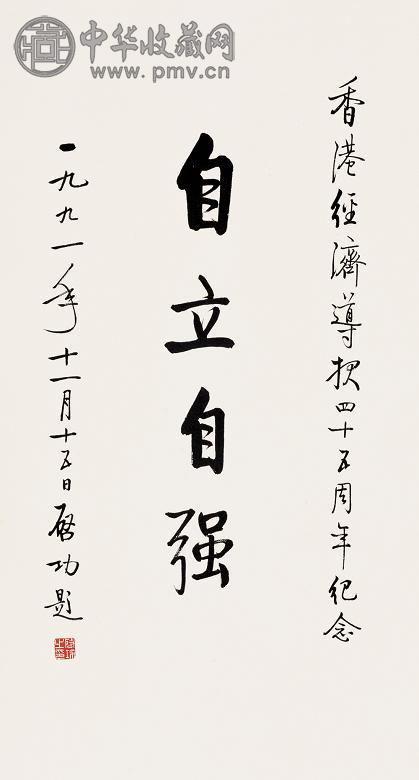 中华收藏网
www.pmv.cn
香港經濟導报四十五周年纪念
自立自强
一九九一年十一月十五日启功题